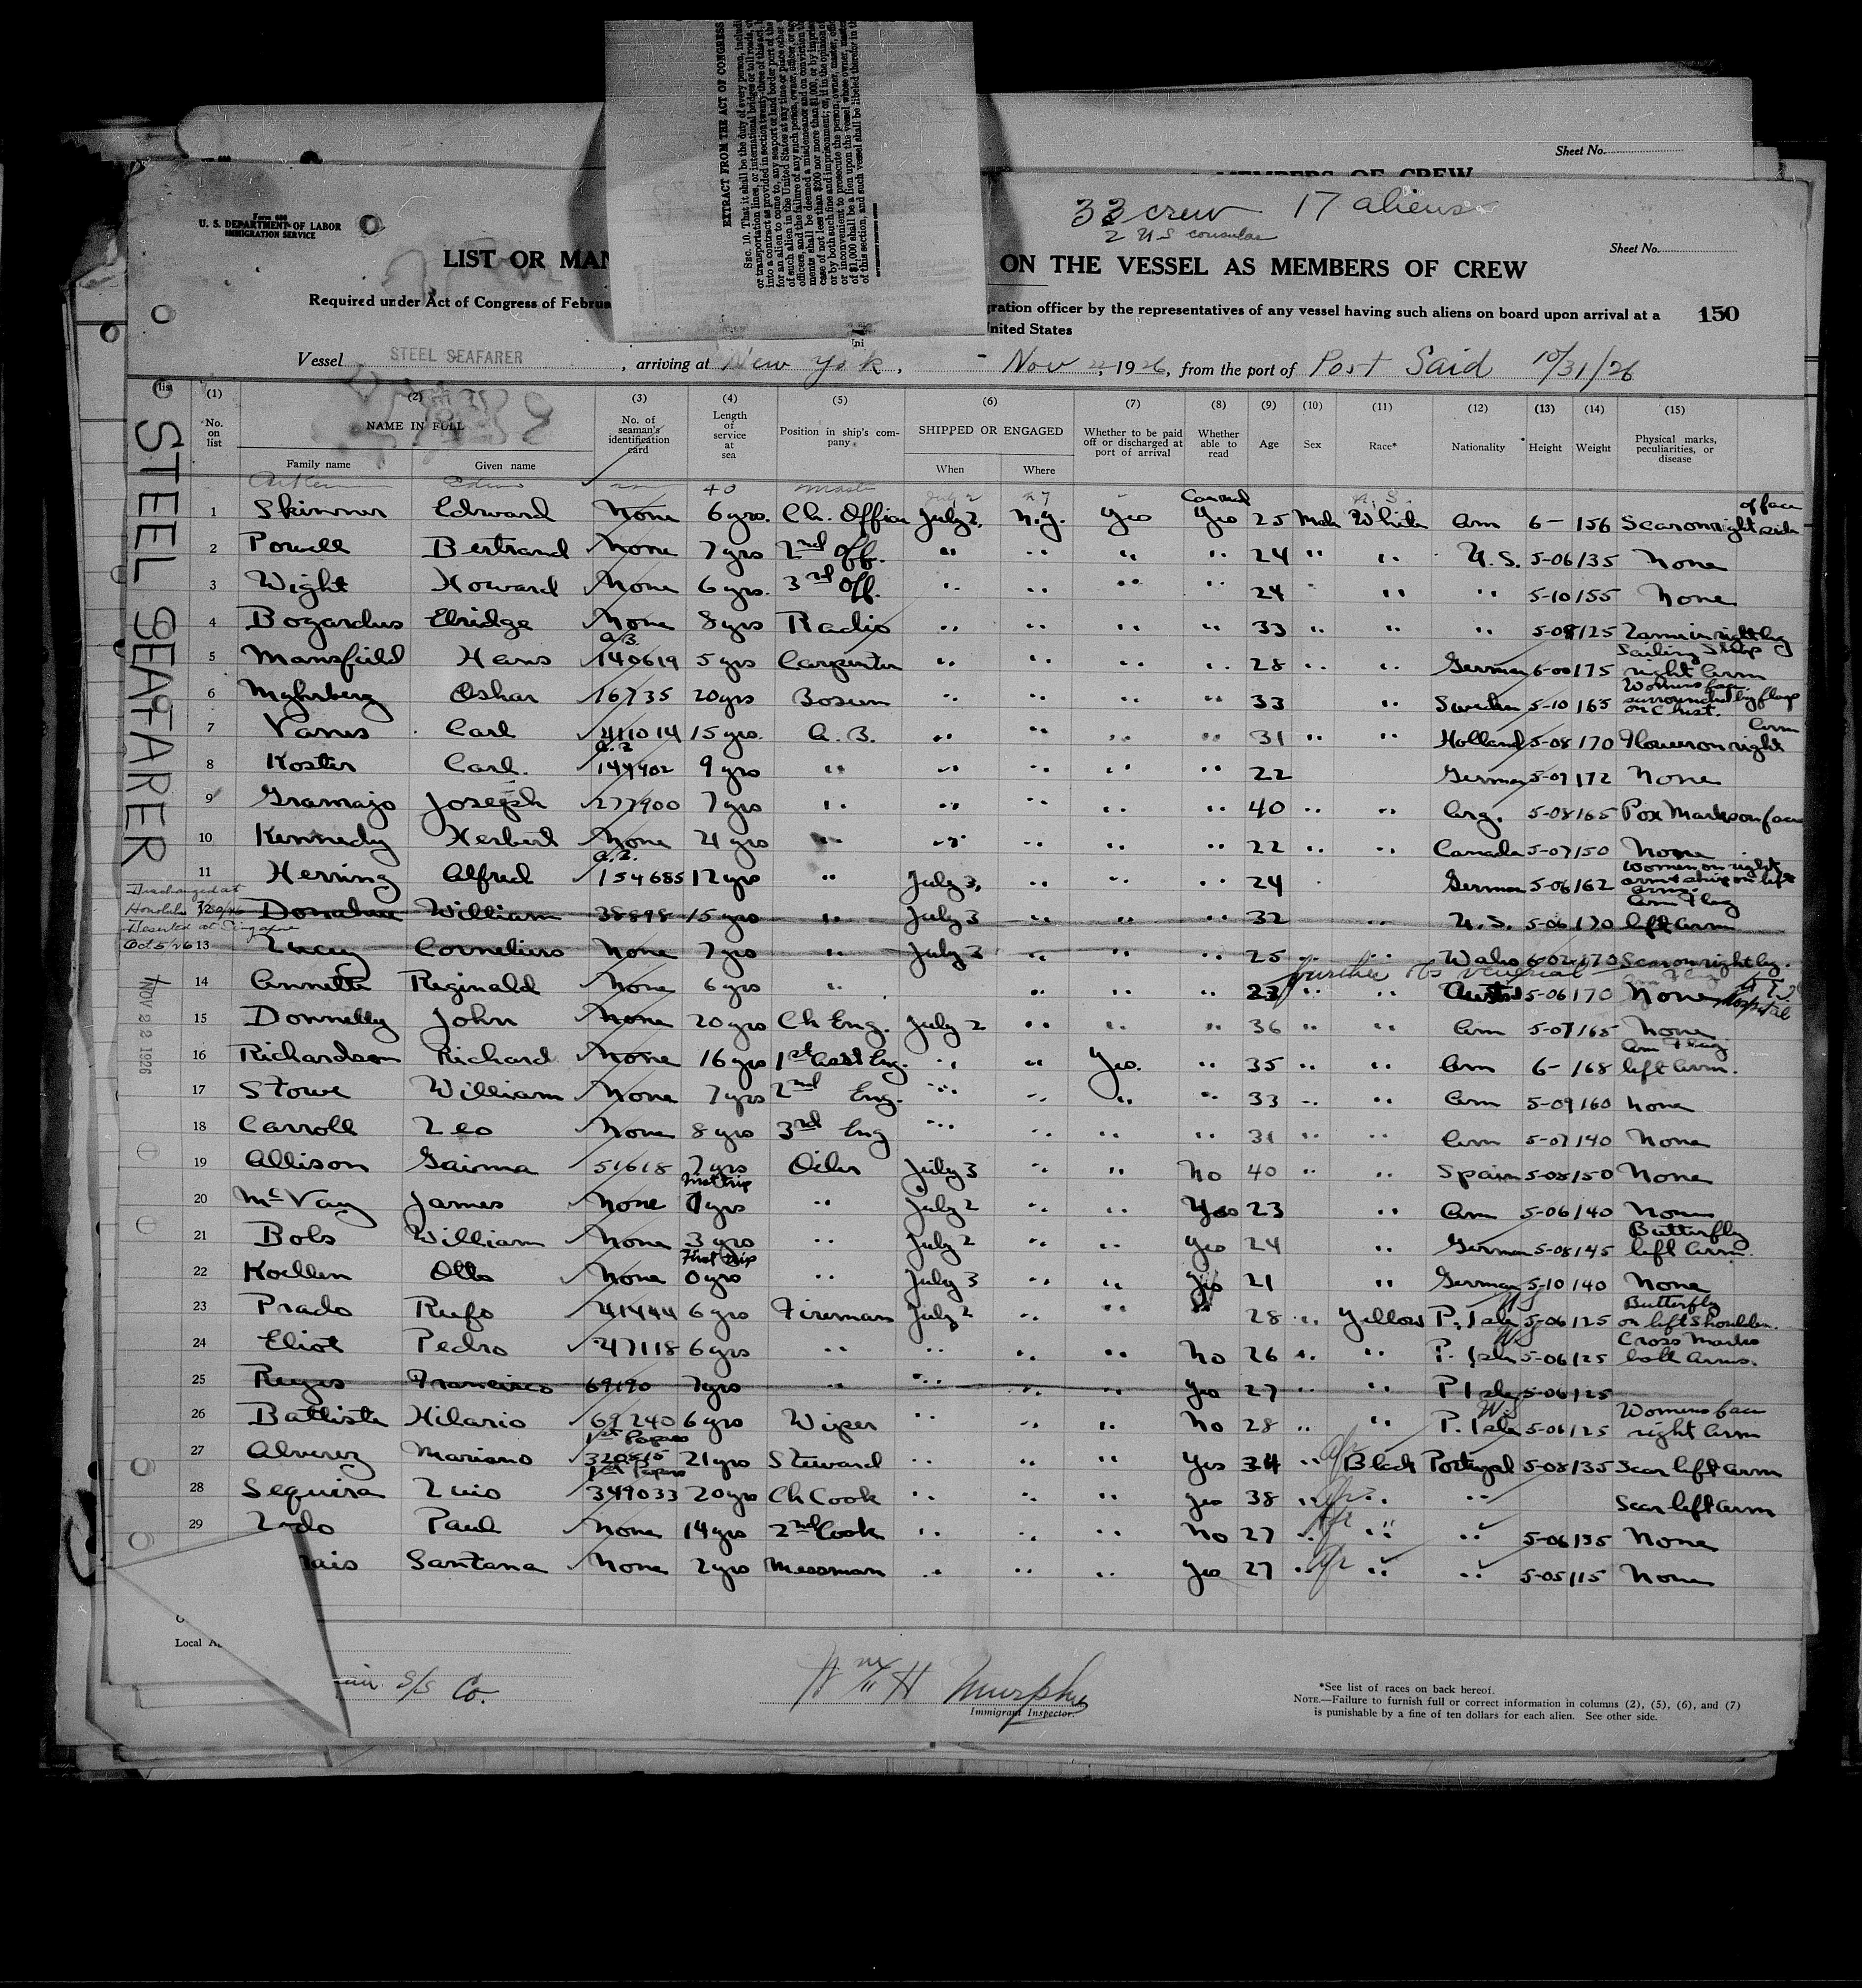 Sheet No.
MEMBERS OF CREW
EXTRACT FROM THE ACT OF CONGRESS
SEC. 10. That it shall be the duty of every person, includi
or transportation lines, or international bridges or toll roads,
into a contract as provided in section twenty-three of this act,
for an alien to come to, any seaport or land border port of the
of such alien in the United States at any time or place other
officers, and the failure of any such person, owner, officer, or
ments shall be deemed a misdemeanor and on conviction
case of not less than $200 nor more than $1,000, or by impris
or by both such fine and imprisonment; or, if in the opinion of
or inconvenient to prosecute the person, owner, master,
of $1,000 shall be a lien upon the vessel whose owner, mas
of this section, and such vessel shall be libeled therefor in
Form 680
U. S. DEPARTMENT OF LABOR
IMMIGRATION SERVICE
33 crew 17 aliens
2 U S consular
Sheet No.
LIST OR MAN ON THE VESSEL AS MEMBERS OF CREW
Required under Act of Congress of Februa gration officer by the representatives of any vessel having such aliens on board upon arrival at a
nited States
150
Vessel STEEL SEAFARER, arriving at New York, Nov 22, 1926, from the port of Port Said 10/31/26
STEEL SEAFARER
list
(1) No. on list
(2) NAME IN FULL
Family name Given name
(3) No. of seaman's identification card
(4) Length of service at sea
(5) Position in ship's company
(6) SHIPPED OR ENGAGED
When Where
(7) Whether to be paid off or discharged at port of arrival
(8) Whether able to read
(9) Age
(10) Sex
(11) Race*
(12) Nationality
(13) Height
(14) Weight
(15) Physical marks, peculiarities, or disease
40 Master July 2 N Y U.S.
1 Skinner Edward None 6 yrs. Ch. Officer July 2, N.Y. Yes Yes 25 Male White Am 6- 156 Scar on right side of face
2 Powell Bertrand None 7 yrs 2nd Off. " " " " 24 " " U.S. 5-06 135 None
3 Wight Howard None 6 yrs. 3rd Off. " " " " 24 " " " 5-10 155 None
4 Bogardus Elridge None 8 yrs Radio " " " " 33 " " " 5-08 125 right leg
5 Mansfield Hans 140619 5 yrs Carpenter " " " " 28 " " German 6-00 175 Sailing Ship right arm
6 Myhrberg Oskar 16735 20 yrs Bosun " " " " 33 " Sweden 5-10 165 Womens face surrounded by flags on Chest.
7 Vanes Carl 411014 15 yrs. A.B. " " " " 31 " " Holland 5-08 170 Flower on right arm
8 Koster Carl. 144402 9 yrs " " " " " 22 German 5-07 172 None
9 Gramajo Joseph 277900 7 yrs " " " " " 40 " " Arg. 5-08 165 Pox Marks on face
10 Kennedy Herbert None 4 yrs " " " " 22 " " Canada 5-07 150 None
11 Herring Alfred 154685 12 yrs " July 3, " " " 24 German 5-06 162 Women on right arm & ship on left arm.
Discharged at Honolulu
Donahue William 38898 15 yrs " July 3 " " " 32 " U.S. 5-06 170 Am Flag left arm
Deserted at Singapore Oct 5/26
13 Lucey Cornelius None 7 yrs " July 3 " " " 25 " " Wales 6-02 170 Scar on right leg.
14 Annetts Reginald None 6 yrs " " " " 23 " " 5-06 170 None Hospital
15 Donnelly John None 20 yrs Ch Eng. July 2 " " " 36 " " Am 5-07 165 None
16 Richardson Richard None 16 yrs 1st Asst Eng. " " Yes. " 35 " " Am 6- 168 Am Flag left arm.
17 Stowe William None 7 yrs 2nd Eng. " " " " 33 " " Am 5-09 160 None
18 Carroll Leo None 8 yrs 3rd Eng " " " " 31 " " Am 5-07 140 None
19 Allison Gaima 51618 7 yrs Oiler July 3 " " No 40 " " Spain 5-08 150 None
20 McVay James None First trip 0 yrs " July 2 " " Yes 23 " Am 5-06 140 None
21 Bols William None 3 yrs " July 2 " " Yes 24 " German 5-08 145 Butterfly left arm.
22 Koellen Otto None First trip 0 yrs " July 3 " " Yes 21 " German 5-10 140 None
23 Prado Rufo 41444 6 yrs Fireman July 2 " " " 28 " Yellow P. Isle US 5-06 125 Butterfly on left shoulder.
24 Eliot Pedro 47118 6 yrs " " " " No 26 " " P. Isle US 5-06 125 Cross Marks both arms.
25 Reyes Francisco 69190 7 yrs " " " " Yes 27 " " P Isle 5-06 125
26 Battista Hilario 69240 6 yrs Wiper " " " No 28 " " P. Isle US 5-06 125 Womens face right arm
27 Alverez Mariano 1st Papers 320815 21 yrs Steward " " " Yes 34 " Afr Black Portugal 5-08 135 Scar left arm
28 Sequira Luis 1st Papers 349033 20 yrs Ch Cook " " " Yes 38 " Afr " " Scar left arm
29 Paul None 14 yrs 2nd Cook " " " No 27 " Afr " " 5-06 135 None
ais Santana None 2 yrs Messman " " " Yes 27 " Afr " " 5-05 115 None
NOV 22 1926
Local A
S/S Co.
Wm H Murphy
Immigrant Inspector.
*See list of races on back hereof.
NOTE.—Failure to furnish full or correct information in columns (2), (5), (6), and (7)
is punishable by a fine of ten dollars for each alien. See other side.